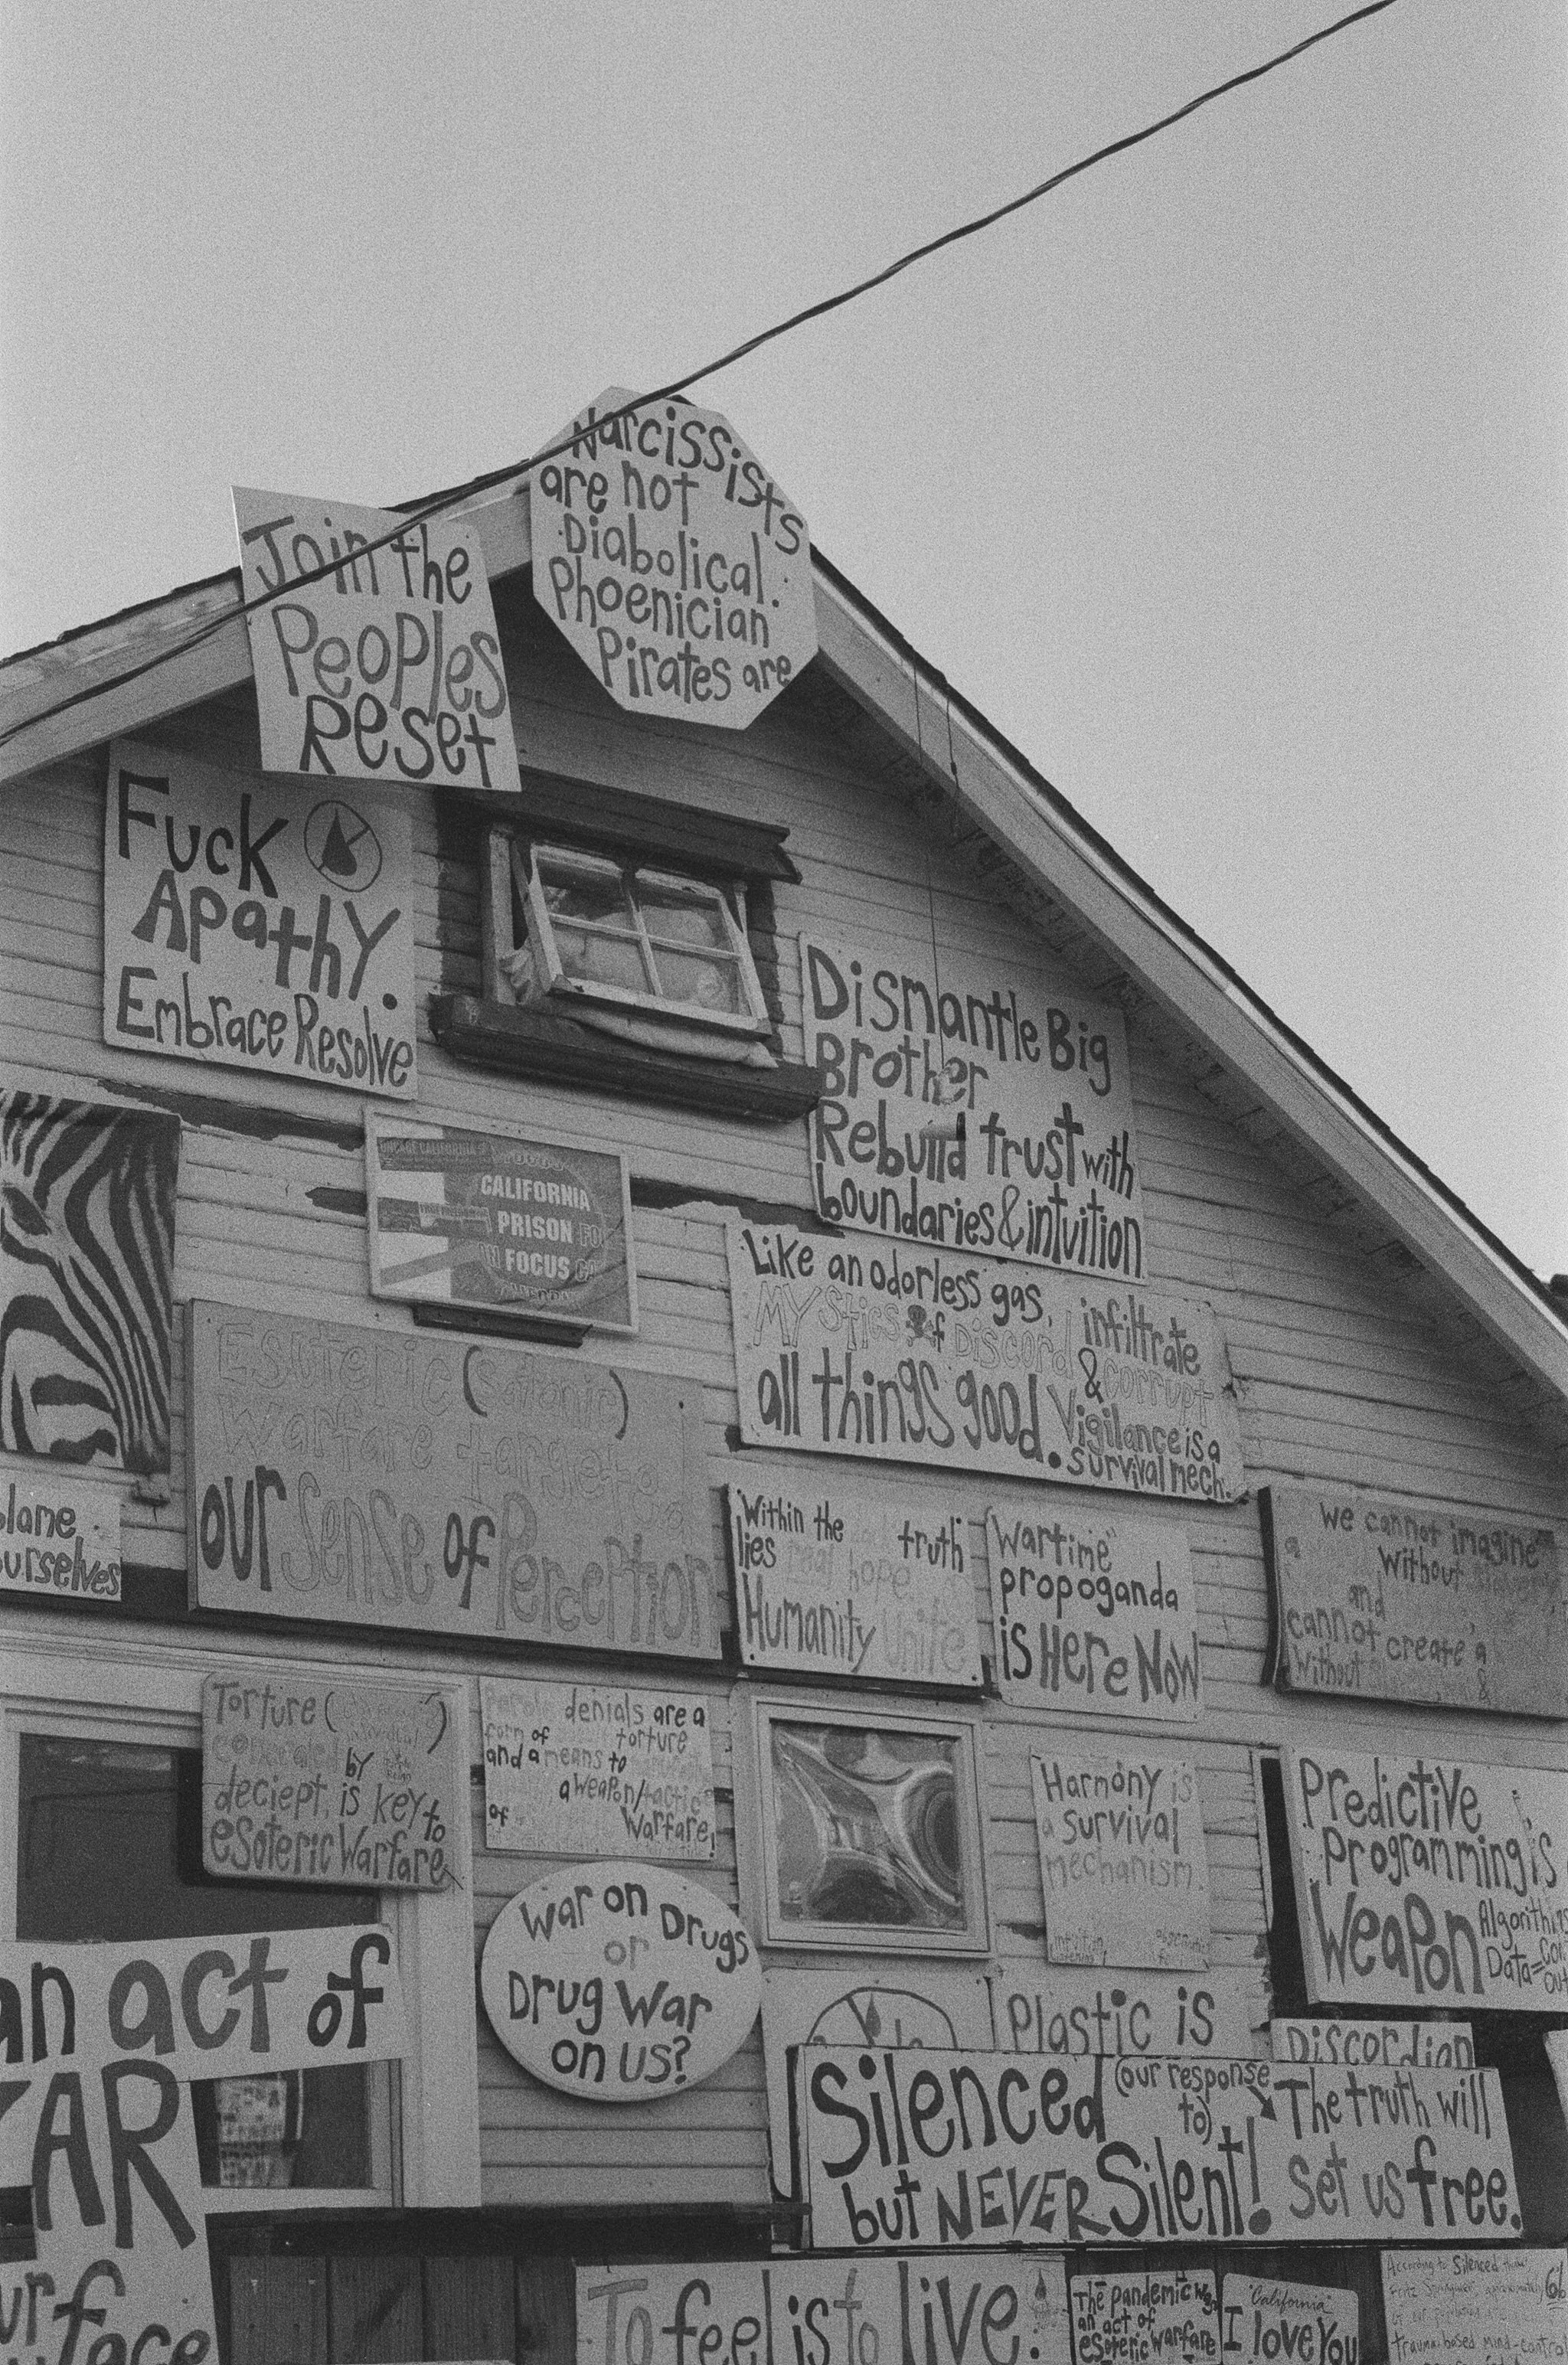 Narcissists
are not
Diabolical.
Phoenician
Pirates are
Join the
Peoples
Reset
Fuck
Apathy.
Embrace Resolve
Dismantle Big
Brother
Rebuild trust with
boundaries & intuition
CALIFORNIA
PRISON
IN FOCUS
Like an odorless gas,
MYStics of Discord infiltrate
& corrupt
all things good. Vigilance is a
survival mech.
Esoteric (Satanic)
Warfare targeted
our Sense of Perception
lame
urselves
Within the truth
lies real hope.
Humanity Unite
"Wartime"
propoganda
is Here Now
we cannot imagine
a Without
and
cannot create a
Without &
Torture (
concealed by
deciept, is key to
esoteric Warfare
Parole denials are a
form of torture
and a means to
a weapon/tactic
of Warfare!
Harmony is
a survival
mechanism.
Predictive
Programming is
Weapon
Algorithms
Data=
an act of
War on Drugs
or
Drug War
on us?
Plastic is
Discordian
AR
Silenced (our response
to) The truth will
but NEVER Silent! set us free.
ur
face
To feel is to live.
The pandemic was
an act of
esoteric warfare
"California"
I love You
According to Silenced
trauma-based mind-control